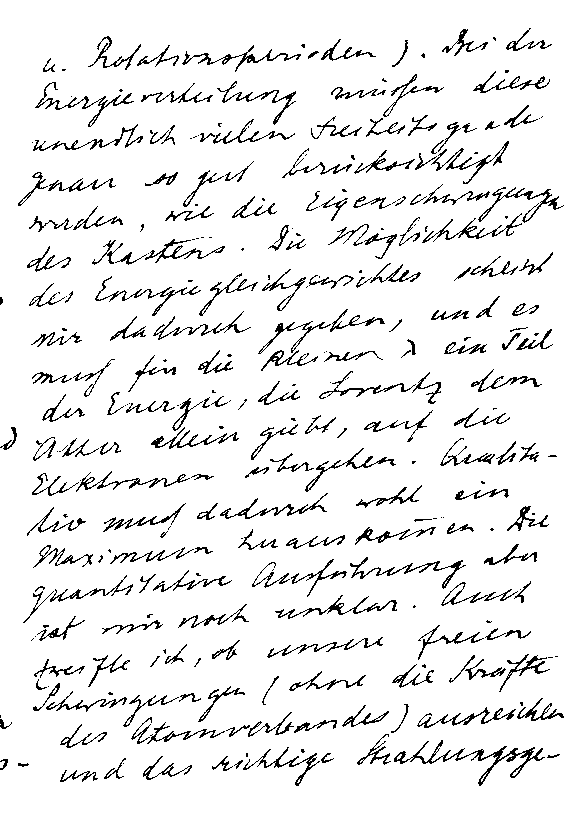 u. Rotationsperioden). Bei der
Energieverteilung müssen diese
unendlich vielen Freiheitsgrade
genau so gut berücksichtigt
werden, wie die Eigenschwingungen
des Kastens. Die Möglichkeit
des Energiegleichgewichtes scheint
mir dadurch gegeben, und es
muß für die kleinen λ ein Teil
der Energie, die Lorentz dem
Äther allein giebt, auf die
Elektronen übergehen. Qualita-
tiv muß dadurch wohl ein
Maximum herauskom̄en. Die
quantitative Ausführung aber
ist mir noch unklar. Auch
zweifle ich, ob unsere freien
Schwingungen (ohne die Kräfte
des Atomverbandes) ausreichen
und das richtige Strahlungsge-